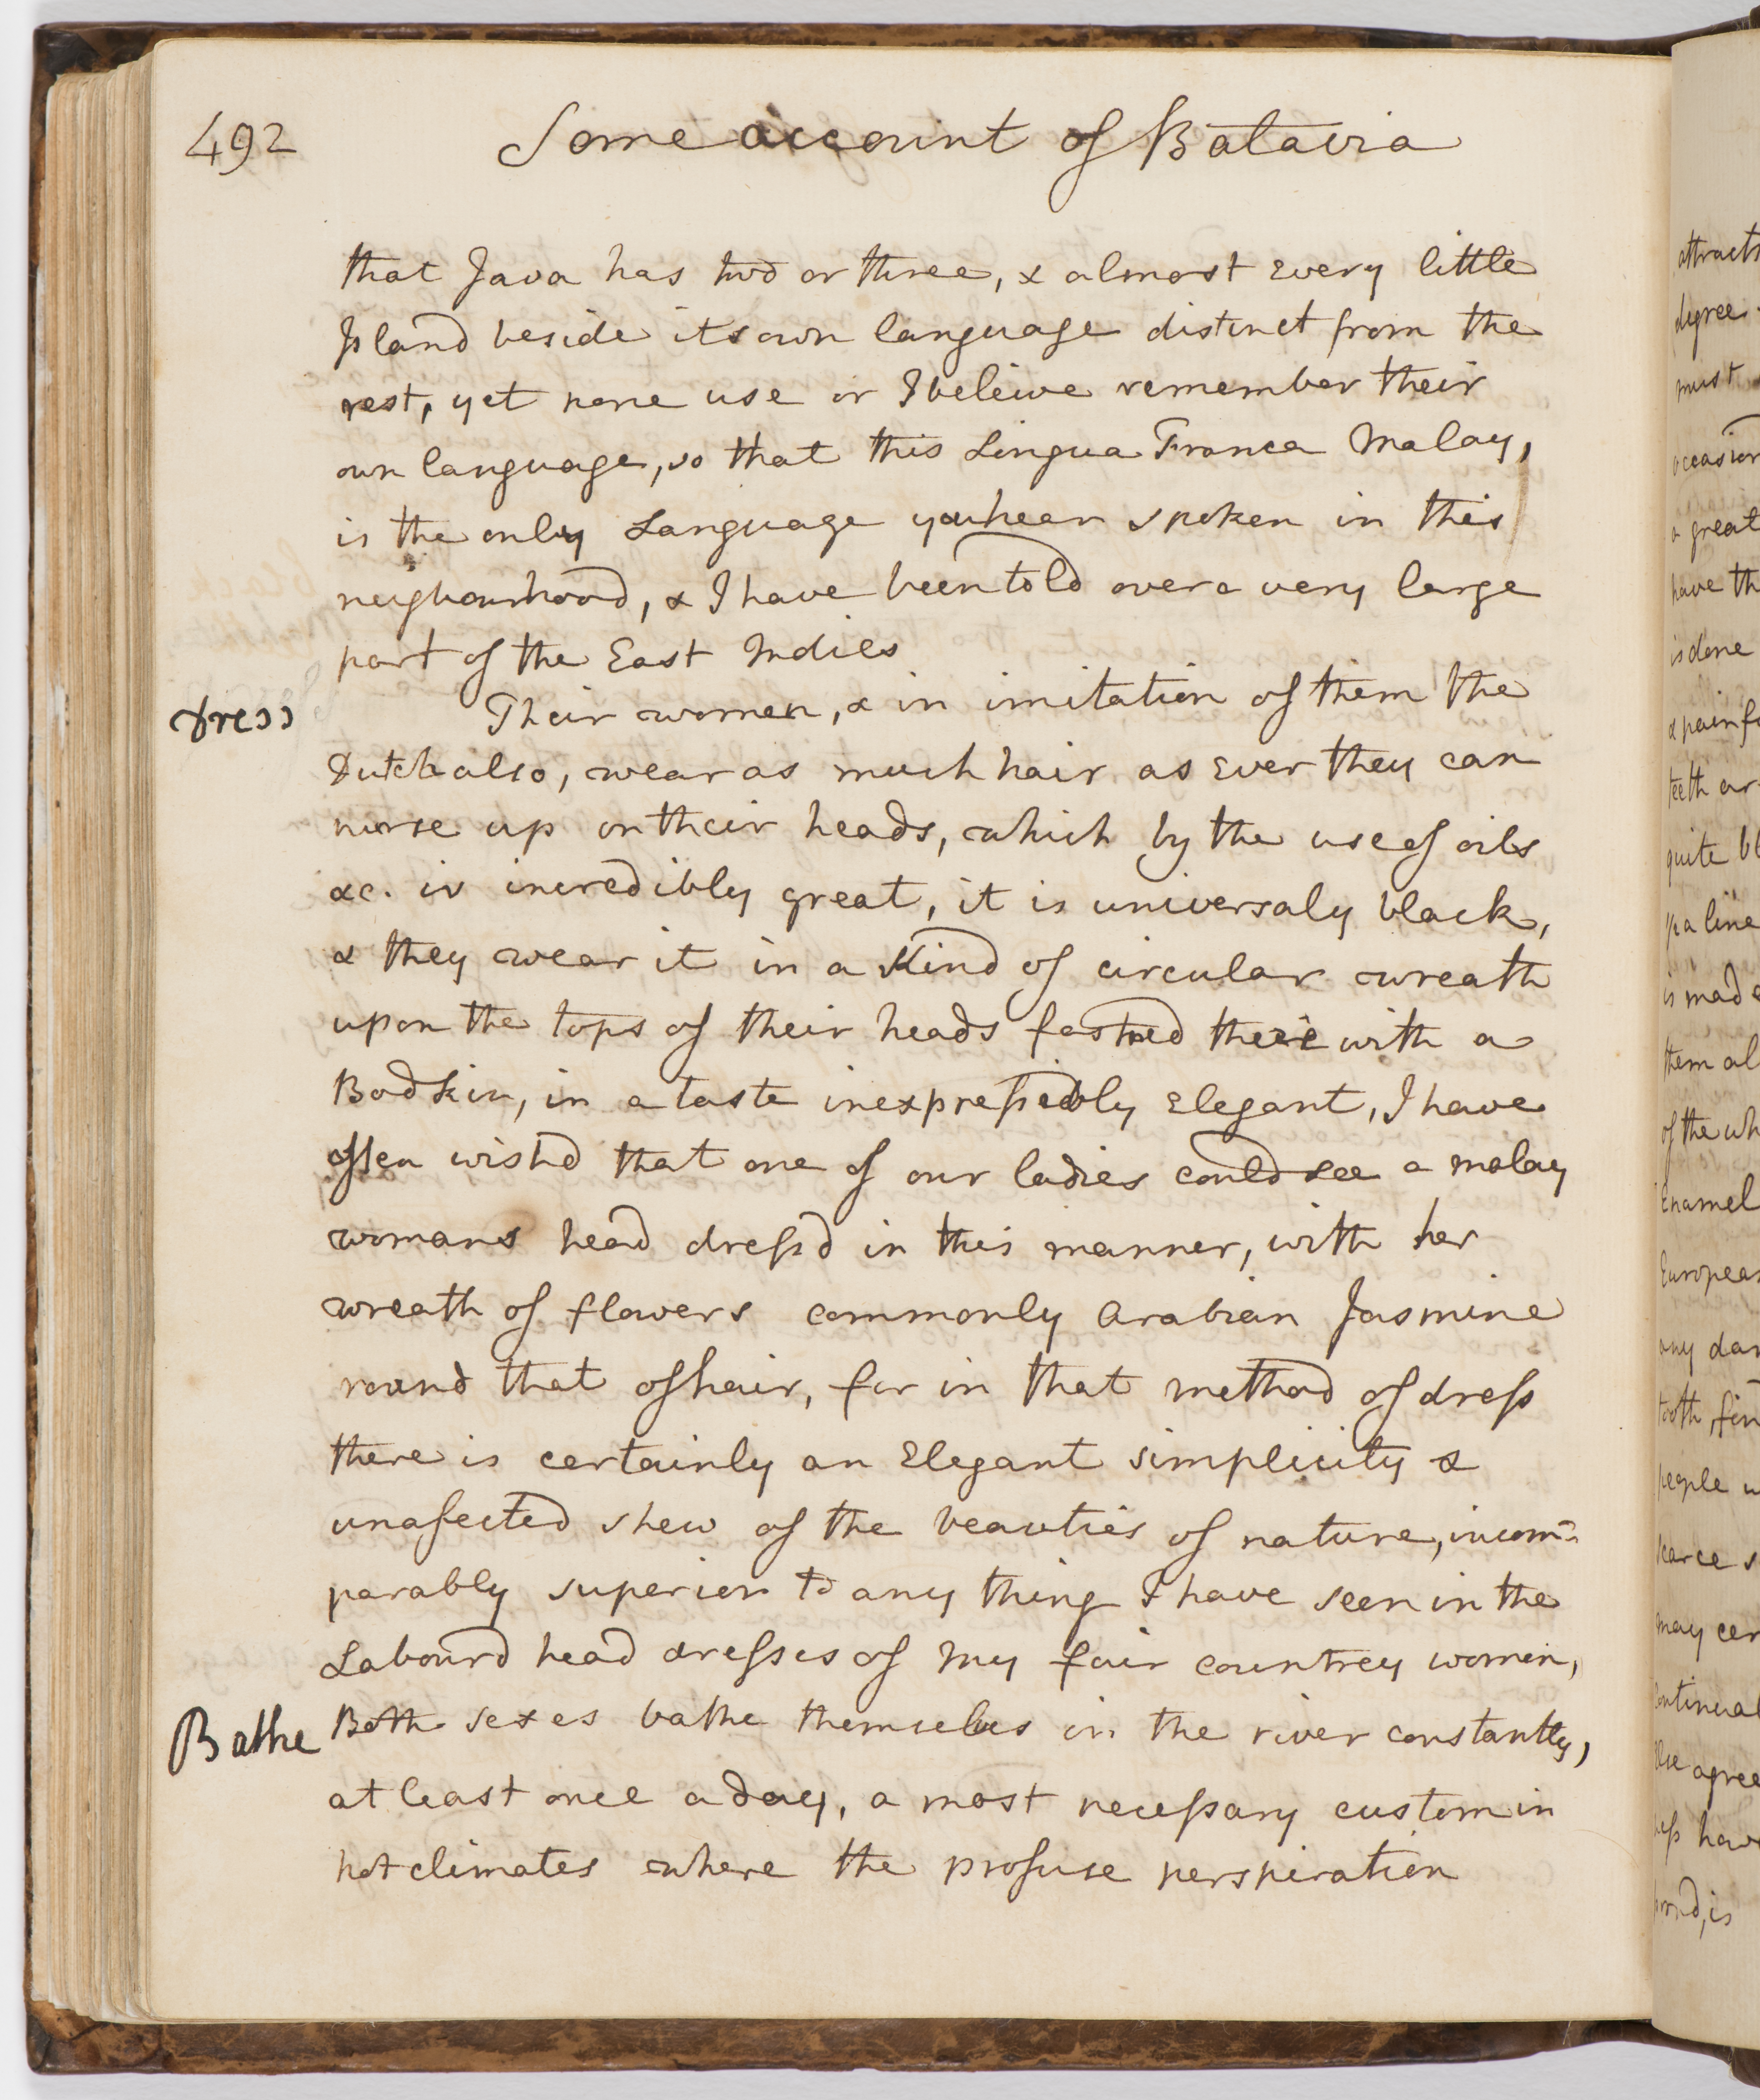 492
Some account of Batavia
that Java has two or three, & almost Every little
Island beside its own language distinct from the
rest, yet none use or I beleive remember their
own language, so that this Lingua Franca Malay,
is the only Language you hear spoken in this
neighourhood, & I have been told over a very large
part of the East Indies
dress
Their women, & in imitation of them the
Dutch also, wear as much hair as Ever they can
nurse up on their heads, which by the use of oils
&c. is incredibly great, it is universaly black,
& they wear it in a Kind of circular wreath
upon the tops of their heads fastned there with a
Bodkin, in a taste inexpressibly Elegant, I have
often wishd that one of our ladies could see a malay
womans head dressd in this manner, with her
wreath of flowers commonly Arabian Jasmine
round that of hair, for in that method of dress
there is certainly an Elegant simplicity &
unafected shew of the beauties of nature, incom=
parably superior to any thing I have seen in the
Labourd head dresses of my fair countrey women,
Bathe
Both sexes bathe themselves in the river constantly,
at least once a day, a most necessary custom in
hot climates where the profuse perspiration
attracts
degree
must
occasion
a great
have th
is done
& painf
teeth ar
quite bl
is made
them al
of the wh
Enamel
European
any dan
tooth, fin
people w
scarce s
may cer
Continual
agree
hav
is